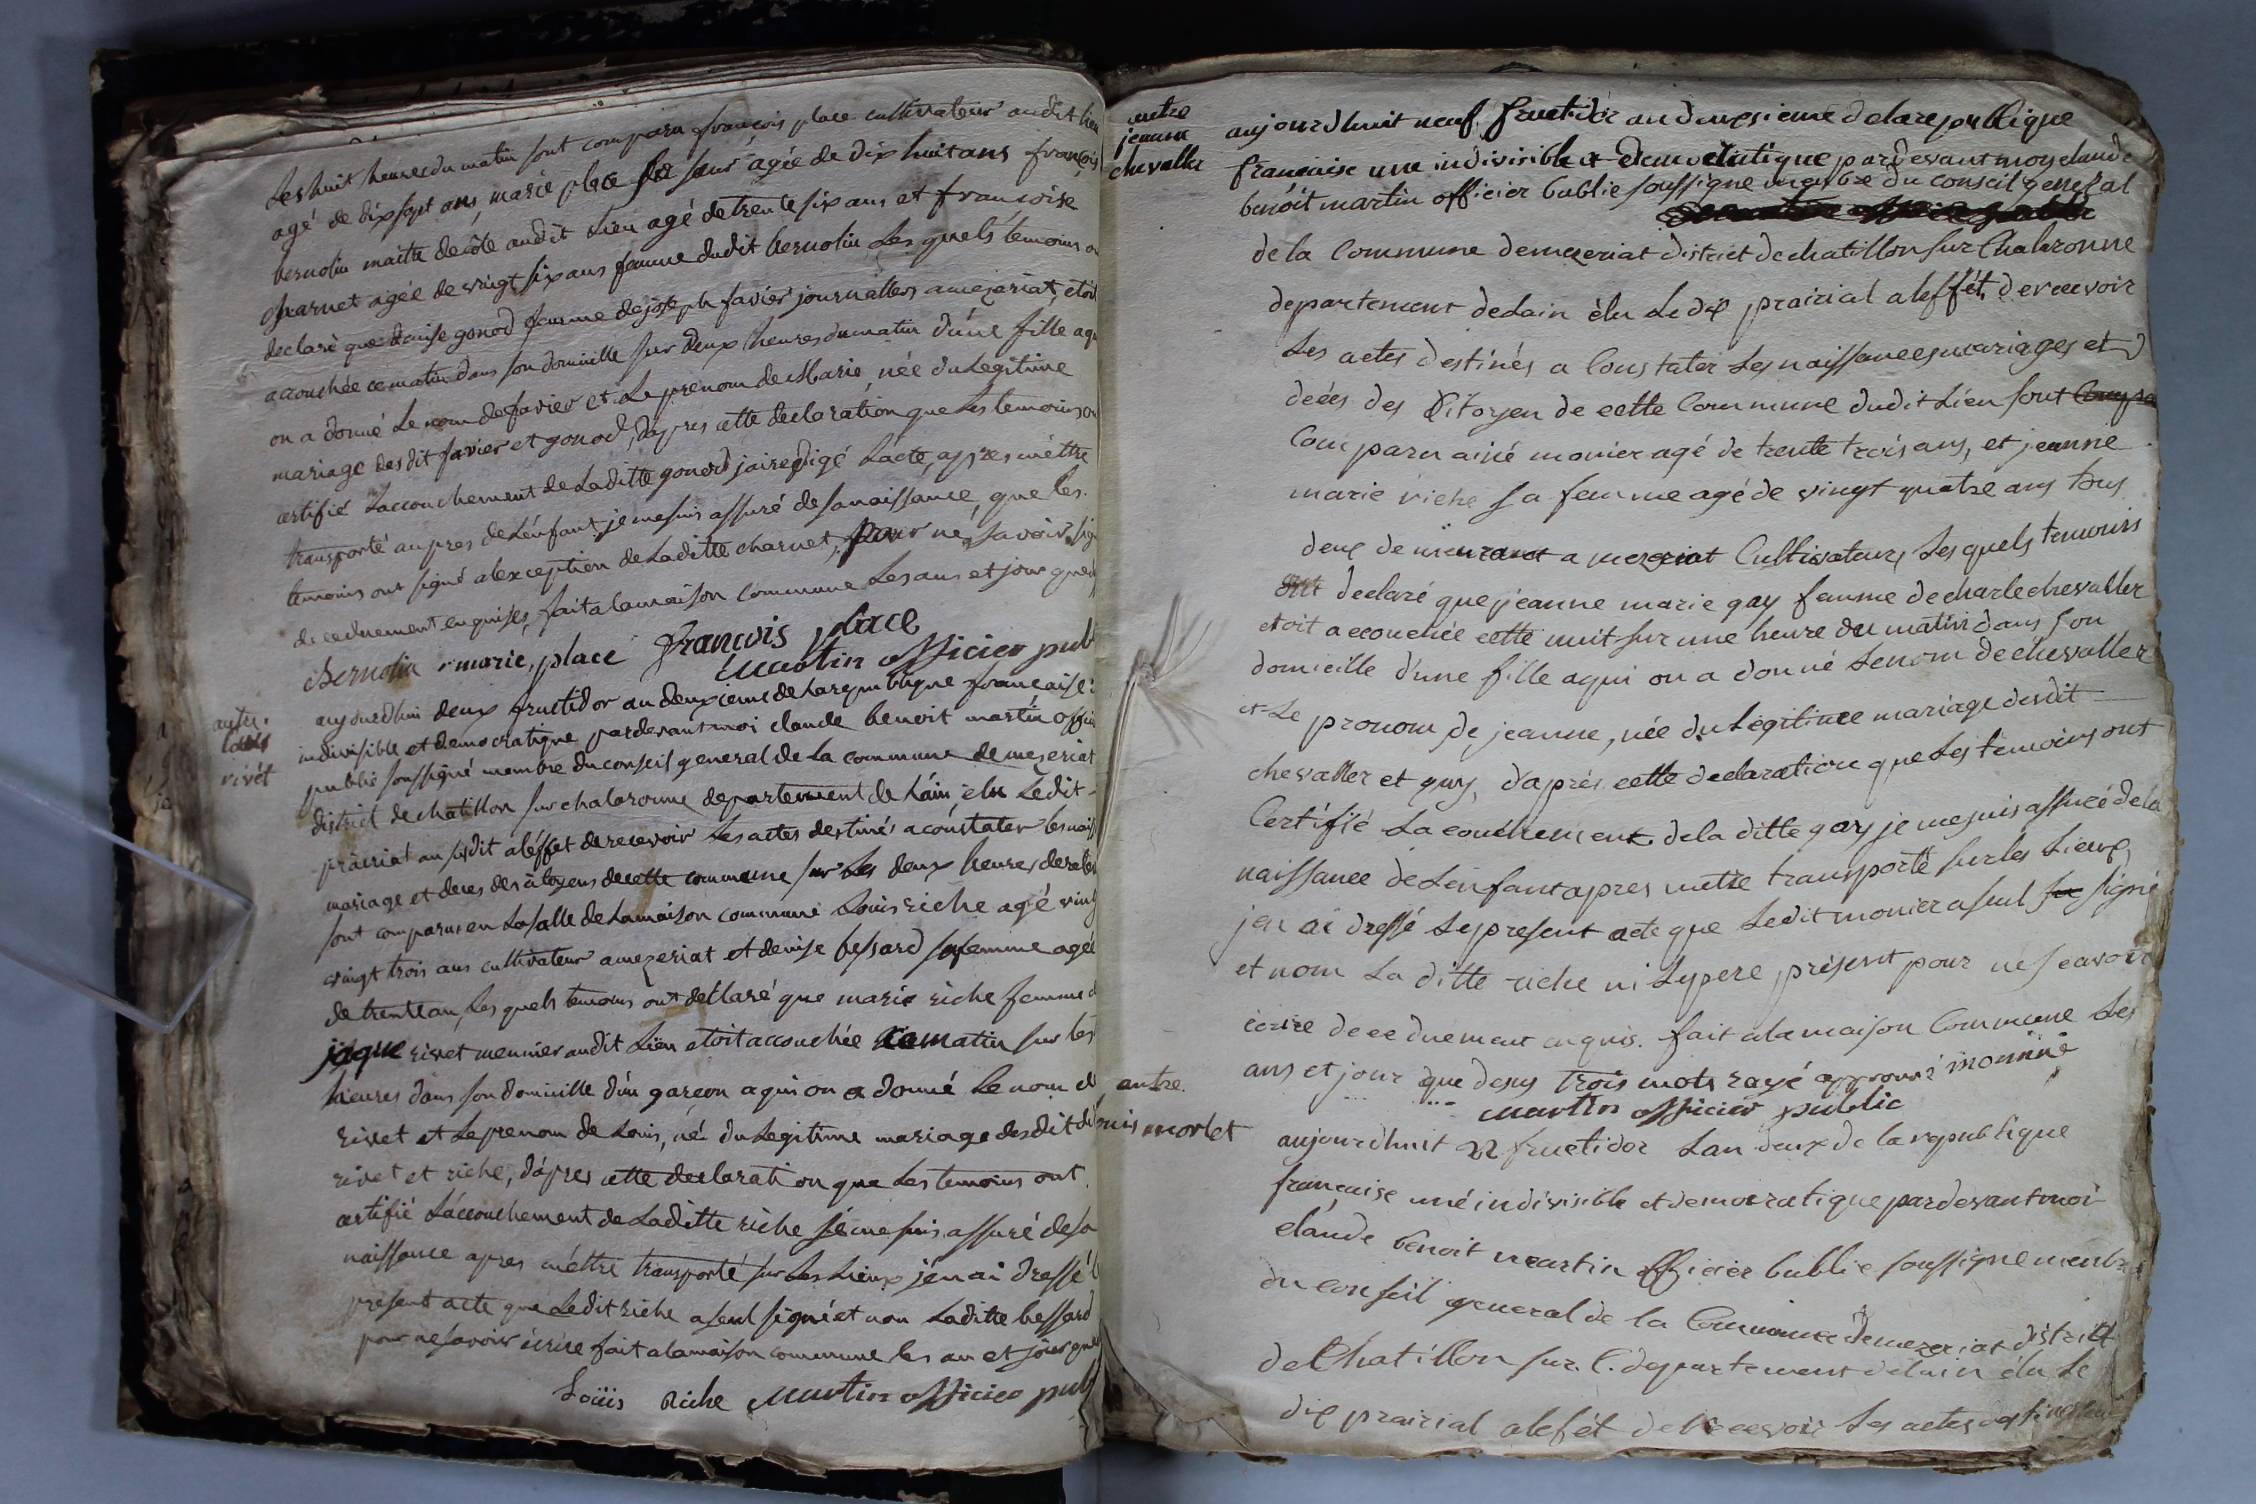 Les huit heures du matin sont comparu françois place cultivateur audit lieu
agé de dix sept ans, marie place sa seur agée de dix huit ans françois
bernolin maitre de côte audit Lieu agé de trente six ans et françoise
charnet agée de vingt six ans femme dudit bernolin Les quels temoins on
declaré que denise gonod femme de joseph favier journallers a mezariat, etoit
accouchée ce matin dans son domicille sur deux heures du matin d'une fille a qu
on a donné Le nom de favier et Le prenom de Marie, née du Legitime
mariage desdit favier et gonod, dapres cette declaration que Les temoins on
certifié Laccouchement de Laditte gonod jai redigé Lacte, apres mêttre
transporté aupres de Lenfant je me suis assuré de sa naissance, que les
temoins ont signé a lexception de Laditte charnet, pour ne savoir sig
de ce duement enquises, fait a la maison commune Les ans et jour que d
Bernolin marie place françois place
Martin officier publ
autre.
Louis
rivét
aujourdhui deux fructidor an deuxieme de Larepublique française
indivisible et democratique pardevant moi claude benoit martin offici
public soussigné membre du conseil general de La commune de mezeriat
district de chatillon sur chalaronne departement de Láin, elu Le dit
prairial au susdit a léffet de recevoir Les actes destinés a constater les nais
mariage et deces des citoyens de cette commune sur Les deux heures de rele
sont comparu en La salle de La maison commune Louis riche agé vingt
vingt trois ans cultivateur a mezeriat et denise bessard sa femme agée
de trente an, Les quels temoins ont declaré que marie riche femme d
jaque rivet meunier audit Lieu etoit accouchée ce matin sur les
heures dans son domicille d'un garçon a qui on a donné Le nom de
rivet et Le prenom de Louis, né du Legitime mariage desdit
rivet et riche, d'apres cette declaration que Les temoins ont
certifié Láccouchement de Laditte riche je me suis assuré de sa
naissance apres mêttre transporté sur Les Lieux j'en ai dressé l
present acte que Ledit riche a seul signé et non Laditte bessard
pour ne savoir écrire fait a la maison commune les an et jour que
Loüis Riche Martin officier publ
autre
jeanne
chevaller
aujourdhuit neuf fructidor an deuxsieme de la republique
française une indivisible et democratique pardevant moy claude
benoit martin officier bublic soussigne membre du conseil general
de la Commune de mezeriat district de chatillon sur Chalaronne
departement de Lain élu Le dix prairial a leffét de recevoir
Les actes destinés a Constater Les naissances mariages et
decés des Citoyen de cette Commune dudit Lieu sont Compa
Comparu ainé monier agé de trente trois ans, et jeanne
marie riche sa femme agé de vingt quatre ans tous
deux demeurant a mezeriat Cultivateurs Les quels temoins
ont declaré que jeanne marie gay femme de charle chevaller
etoit accouchée cette nuit sur une heure du matin dans son
domicille d'une fille a qui on a donné Le nom de chevaller
et Le pronom de jeanne, née du Légitimee mariage desdit
chevaller et gay, d'aprés cette declaration que Les temoins ont
Certifié La couchement de la ditte gay je me suis assuré de la
naissance de Lenfant apres mettre transporté sur les Lieux
jen ai dressé Le present acte que Ledit monier a seul sa signé
et nom La ditte riche ni Le pere présent pour ne scavoir
écrire de ce duement enquis. fait a la maison Commune Les
ans et jour que desus trois mots rayé approuvé monnié
Martin officier public
autre.
Louis morlet
aujourdhuit 22 fructidor Lan deux de la republique
française uné indivisible et democratique pardevant moi
claude benoit martin officier bublic soussigne membre
du conseil general de la Commune de mezeriat district
de Chatillon sur C. departement de lain élu Le
dix prairial a lefét de Recevoir Les actes destines